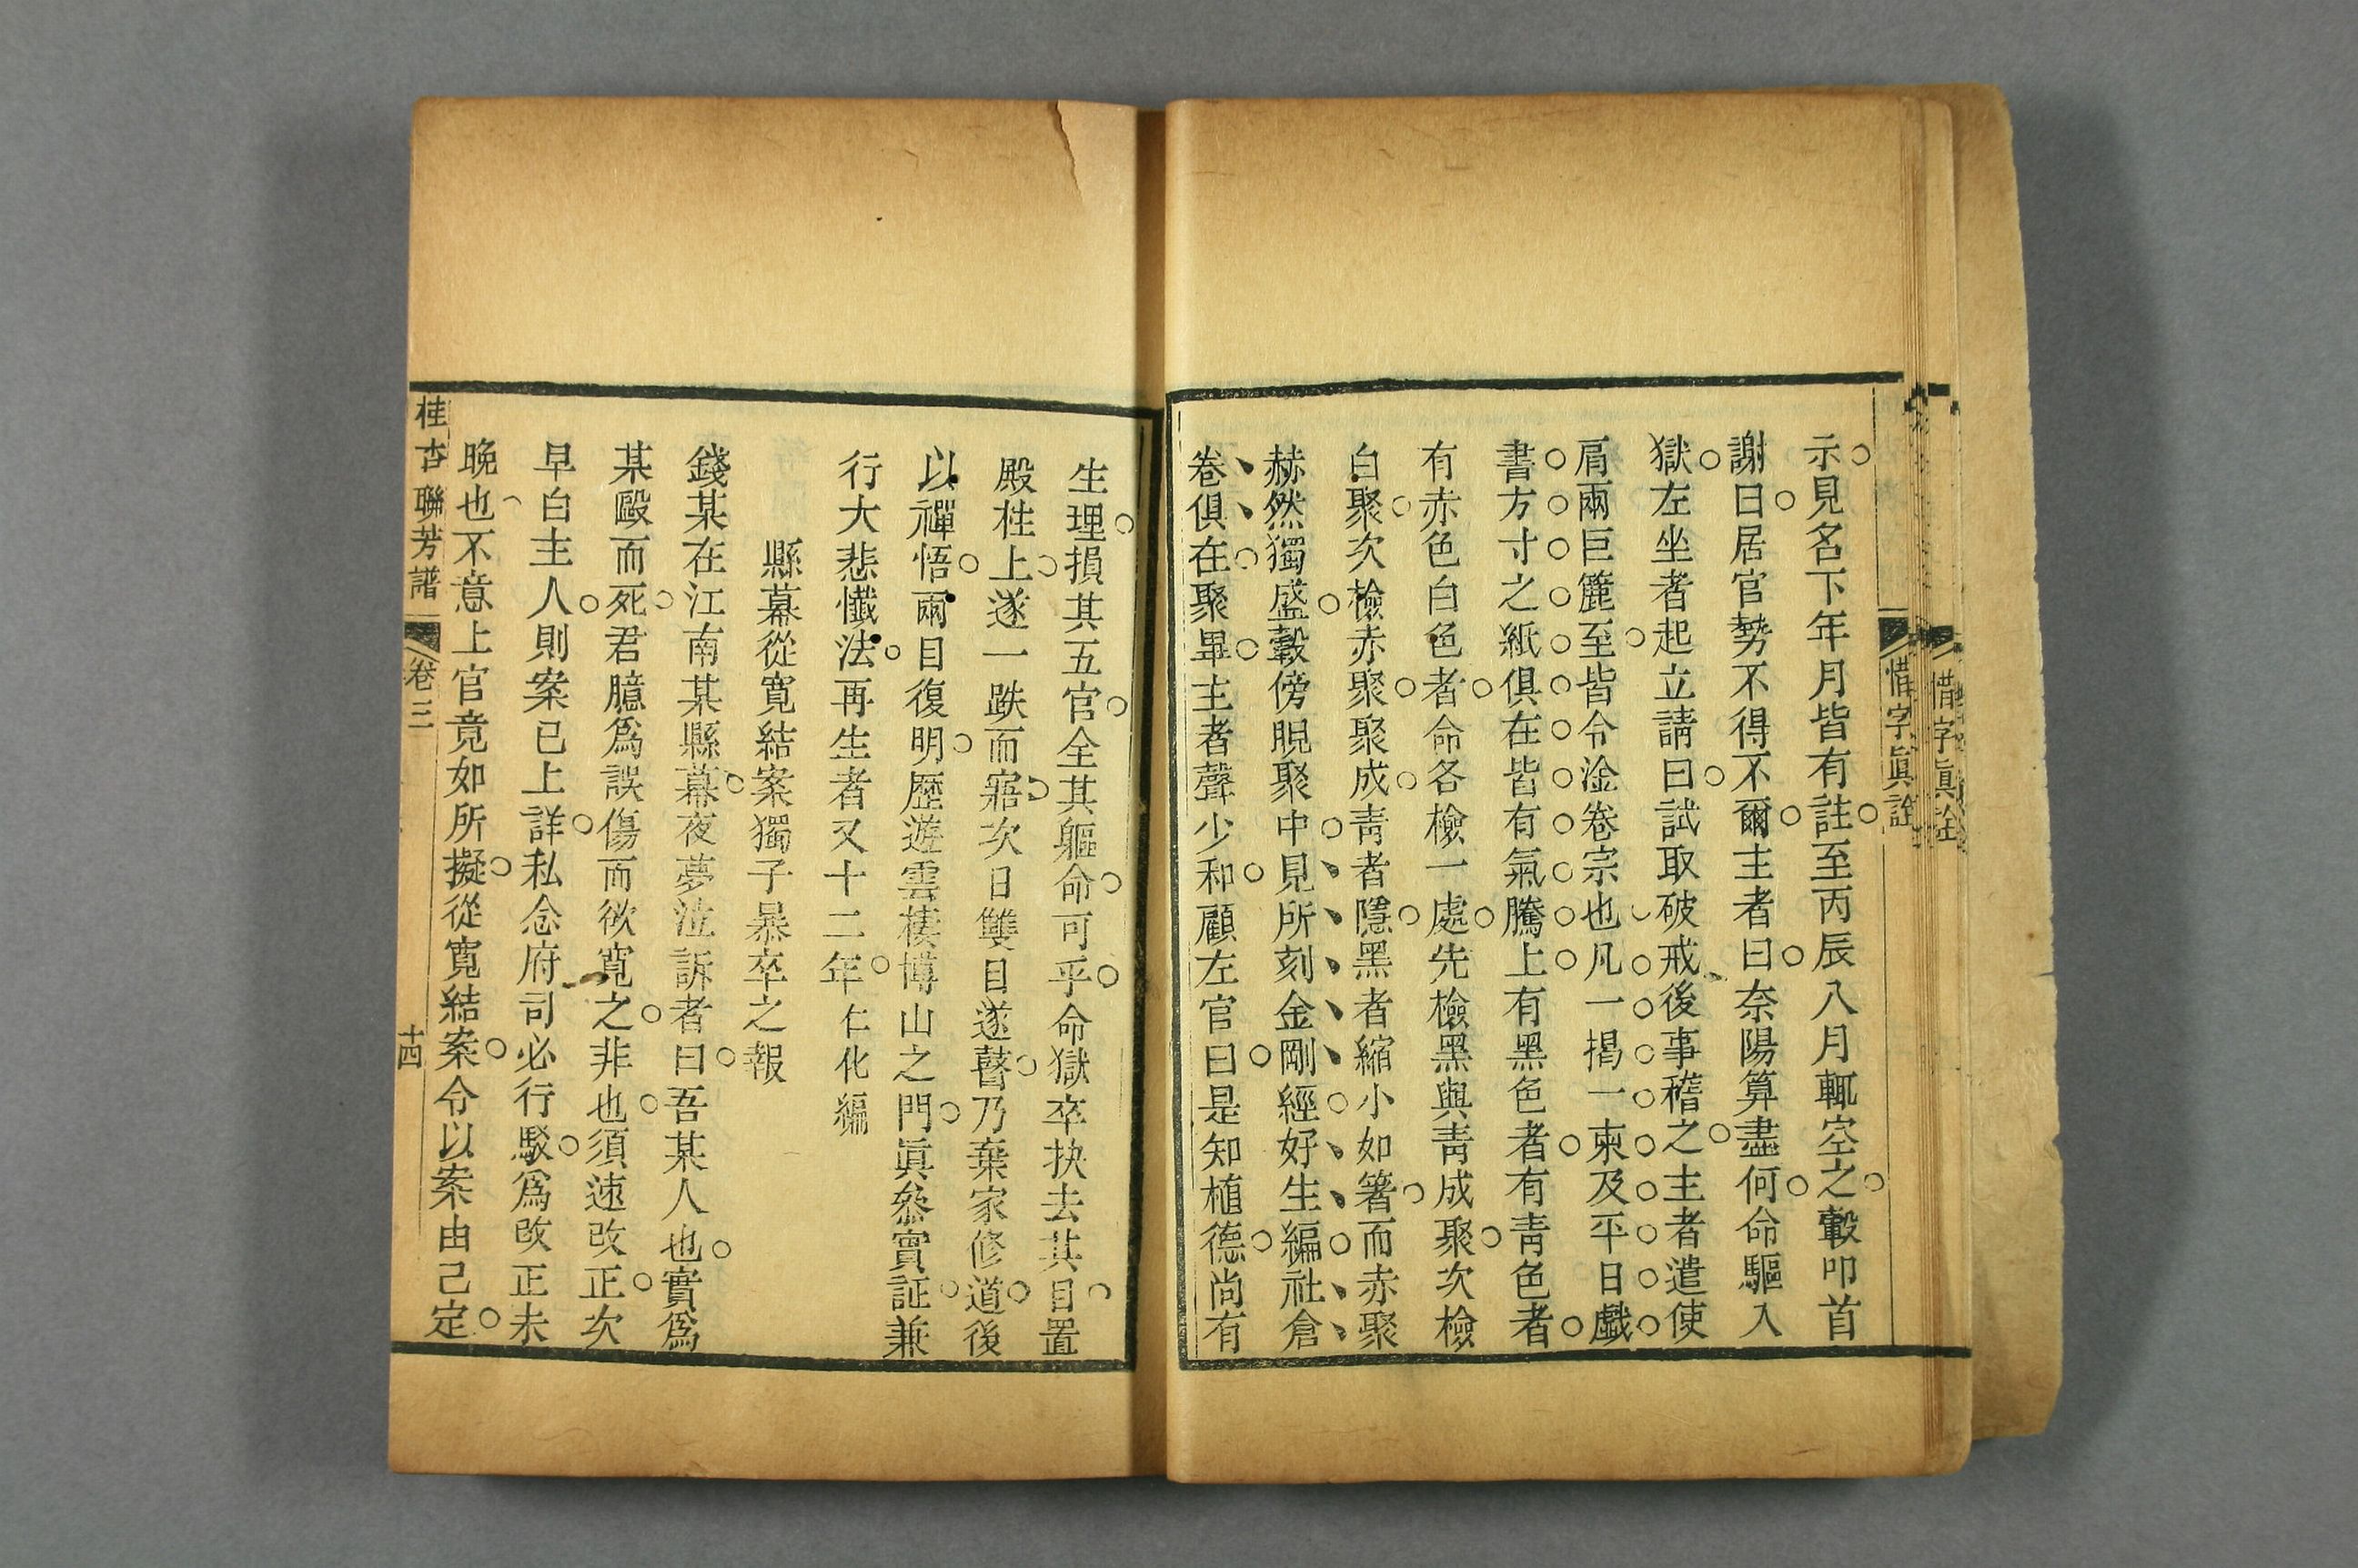 惜字眞詮
惜字眞詮
示見名下年月皆有註至丙辰八月輒空之轂叩首
謝曰居官勢不得不爾主者曰奈陽算盡何命驅入
獄左坐者起立請曰試取破戒後事稽之主者遣使
肩兩巨簏至皆令淦卷宗也凡一揭一柬及平日戲
書方寸之紙俱在皆有氣騰上有黑色者有青色者
有赤色白色者命各檢一處先檢黑與靑成聚次檢
白聚次檢赤聚聚成靑者隱黑者縮小如箸而赤聚
赫然獨盛轂傍睨聚中見所刻金剛經好生編社倉
卷俱在聚畢主者聲少和顧左官曰是知植德尚有
生理損其五官全其軀命可乎命獄卒抉去其目置
殿柱上遂一跌而寤次日雙目遂瞽乃棄家修道後
以禪悟兩目復明歷遊雲棲博山之門眞叅實証兼
行大悲懺法再生者又十二年 仁化編
縣幕從寬結案獨子暴卒之報
錢某在江南某縣幕夜夢泣訴者曰吾某人也實爲
某毆而死君臆爲誤傷而欲寬之非也須速改正次
早白主人則案已上詳私念府司必行駁爲改正未
晚也不意上官竟如所擬從寬結案令以案由己定
桂杏聯芳譜 卷三 十四